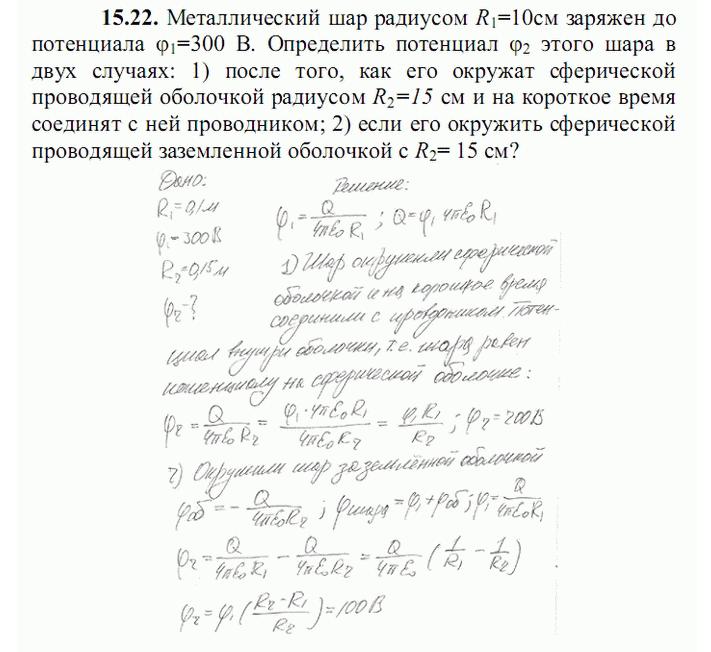 15.22. Металлический шар радиусом R₁=10см заряжен до
потенциала φ₁=300 В. Определить потенциал φ₂ этого шара в
двух случаях: 1) после того, как его окружат сферической
проводящей оболочкой радиусом R₂=15 см и на короткое время
соединят с ней проводником; 2) если его окружить сферической
проводящей заземленной оболочкой с R₂= 15 см?
Дано:
R₁=0,1м
φ₁=300В
R₂=0,15м
φ₂-?
Решение:
φ₁=Q/4πε₀R₁; Q=φ₁4πε₀R₁
1) Шар окружили сферической
оболочкой и на короткое время
соединили с проводником Потен-
циал внутри оболочки, т.е. шара равен
потенциалу на сферической оболочке:
φ₂=Q/4πε₀R₂=φ₁·4πε₀R₁/4πε₀R₂=φ₁R₁/R₂; φ₂=200В
2) Окружили шар заземлённой оболочкой
φоб=-Q/4πε₀R₂; φшара=φ₁+φоб; φ₁=Q/4πε₀R₁
φ₂=Q/4πε₀R₁-Q/4πε₀R₂=Q/4πε₀(1/R₁-1/R₂)
φ₂=φ₁(R₂-R₁/R₂)=100В